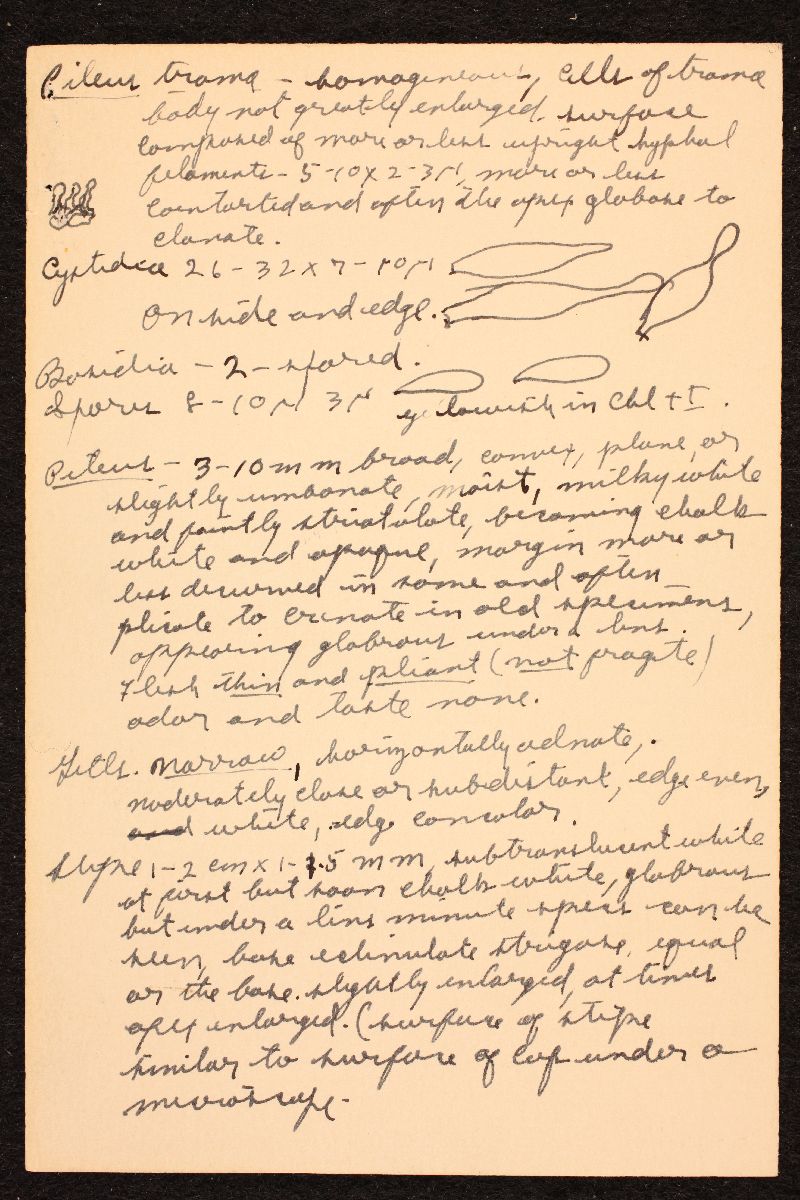 Pileus trama - homogeneous, cells of trama
body not greatly enlarged. surface
composed of more or less upright hyphal
filaments - 5-10 x 2-3 µ, more or less
contorted and often the apex globose to
clavate.
Cystidia 26-32 x 7-10 µ.
On side and edge.
Basidia - 2 - spored.
Spores 8-10 µ 3 µ yellowish in Chl + I.
Pileus - 3-10 mm broad, convex, plane, or
slightly umbonate, moist, milky white
and faintly striatulate, becoming chalk
white and opaque, margin more or
less decurved in some and often
plicate to crenate in old specimens,
appearing glabrous under a lens.
Flesh thin and pliant (not fragile)
odor and taste none.
Gills. narrow, horizontally adnate,
moderately close or subdistant, edge even,
and white, edge concolor.
Stipe 1-2 cm x 1-1.5 mm, subtranslucent white
at first but soon chalk white, glabrous
but under a lens minute specs can be
seen, base strigose, equal
or the base slightly enlarged, at times
apex enlarged. (surface of stipe
similar to surface of cap under a
microscope.